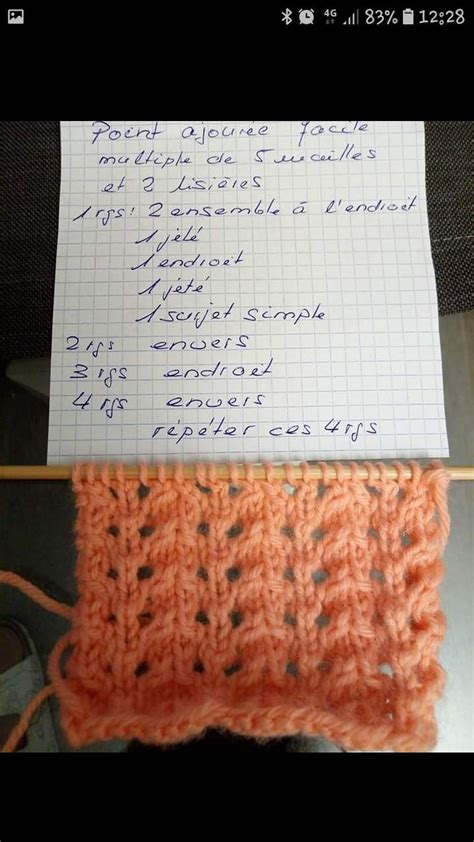 4G 83% 12:28
Point ajourée facile
multiple de 5 mailles
et 2 lisières
1 rgs: 2 ensemble à l'endroit
1 jété
1 endroit
1 jété
1 surjet simple
2 rgs envers
3 rgs endroit
4 rgs envers
répéter ces 4 rgs